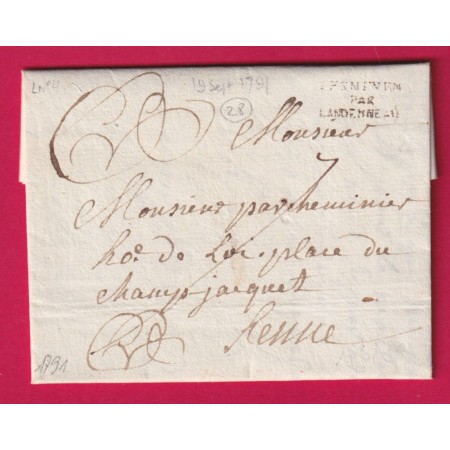 LNo4
19 Sept 1791
28
LESNEVEN
PAR
LANDERNEAU
Monsieur
7
Monsieur parcheminier
ho. de Loi. place du
champ jacquet
Renne
1791